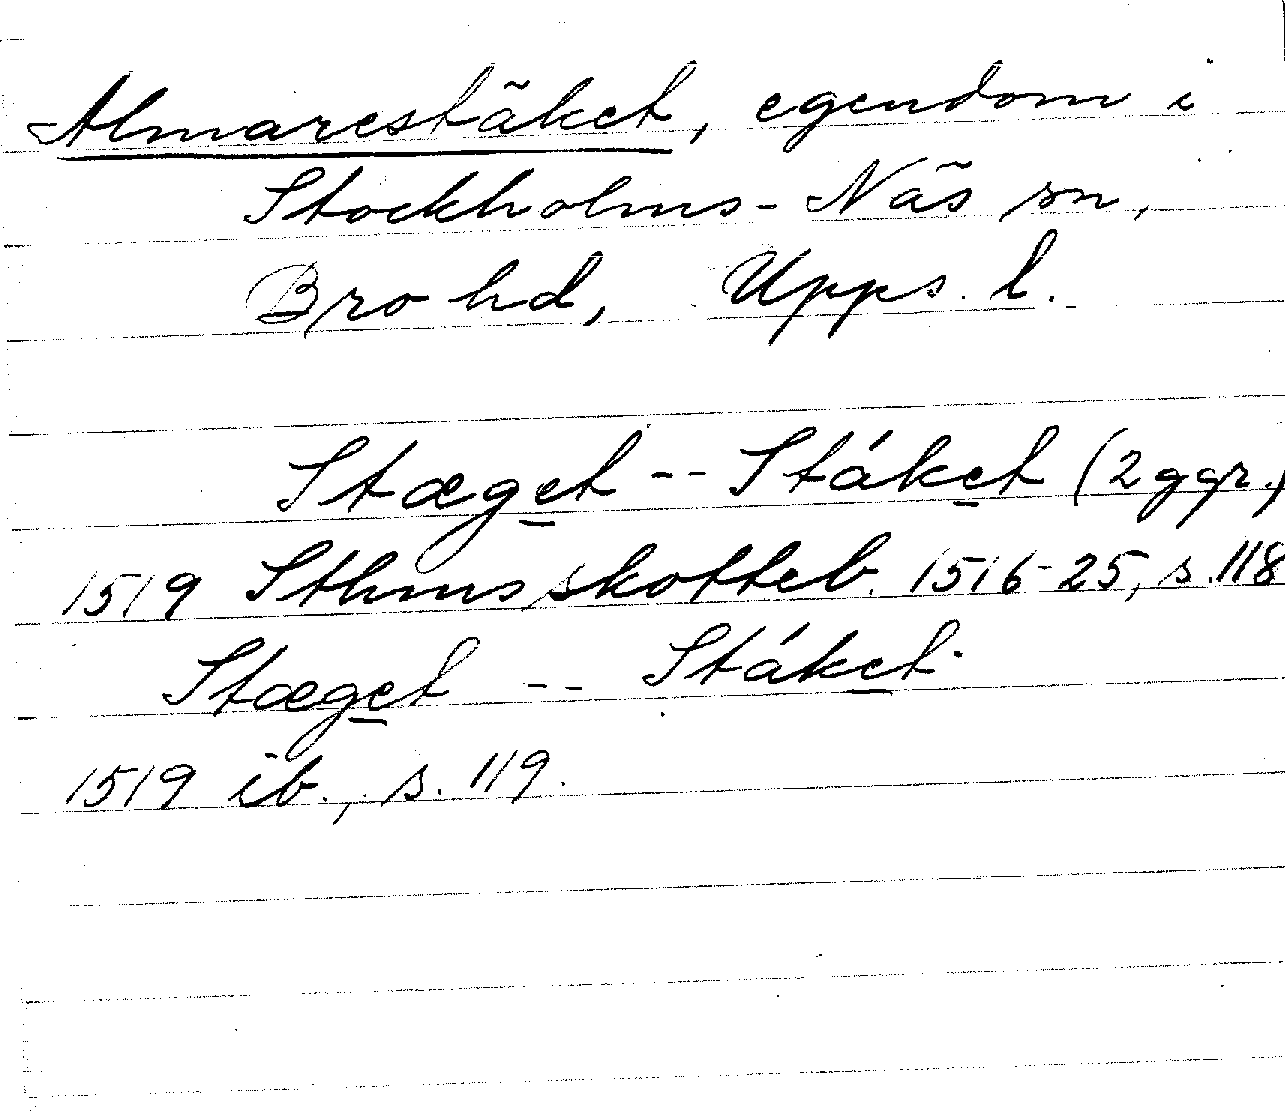 Almarestäket, egendom i
Stockholms-Näs sn,
Bro hd, Upps. l.
Stæget -- Stáket (2 ggr.)
1519 Sthms skotteb. 1516-25, s. 118
Stæget -- Stáket
1519 ib., s. 119.